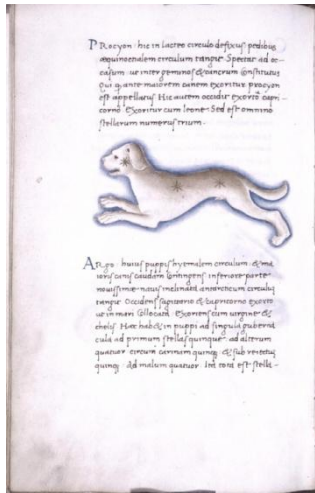 PRocyon hic in lacteo circulo defixus pedibus
æquinoctialem circulum tangit Spectat ad oc-
casum ut inter geminos & cancrum constitutus
Qui quante maiorem canem exoritur procyon
est appellatus Hic autem occidit exorto capri-
corno Exoritur cum leone Sed est omnino
stellarum numerus trium
ARgo huius puppis hyemalem circulum & ma
ioris canis caudam contingens inferiore parte
novissimæ navis inclinata antarcticum circulum
tangit Occidens sagittario & capricorno exorto
ut in mari collocata Exoriens cum virgine &
chelis Hæc habet in puppi ad singula guberna
cula ad primum stellas quinque ad alterum
quatuor circum carinam quinque & sub reiectus
quinque ad malum quatuor Ita tota est stella-